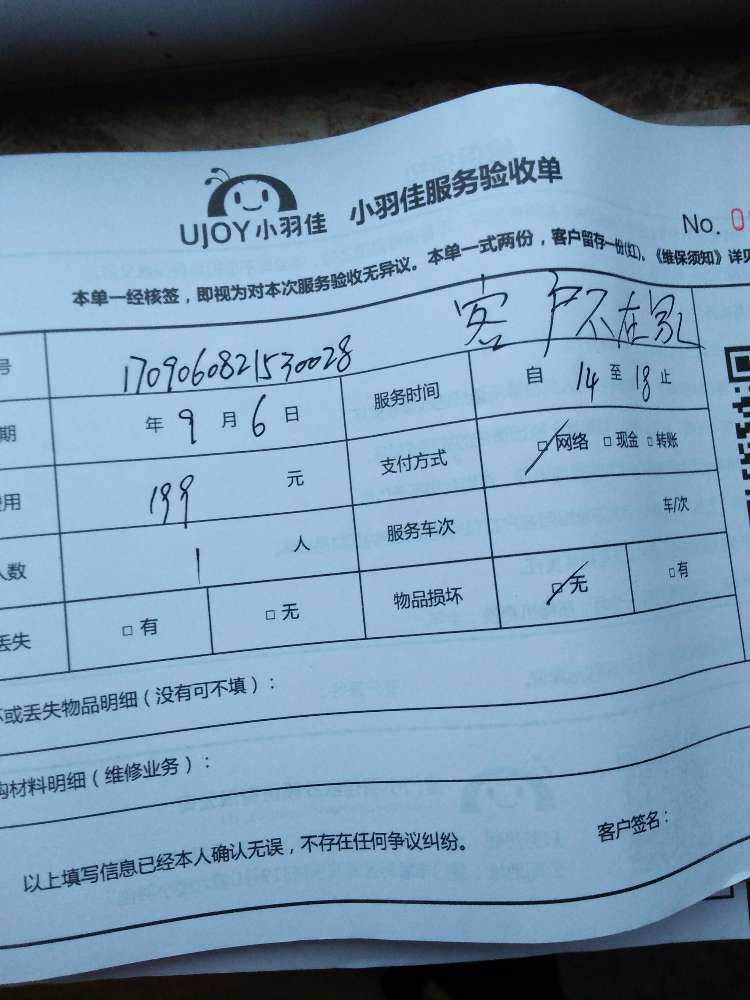 UJOY小羽佳 小羽佳服务验收单
No. 0
本单一经核签，即视为对本次服务验收无异议。本单一式两份，客户留存一份(红)。《维保须知》详见
客户不在家
号 1709060821530028
期 年 9 月 6 日 服务时间 自 14 至 18 止
费用 199 元 支付方式 □ 网络 □ 现金 □ 转账
人数 1 人 服务车次 车/次
丢失 □ 有 □ 无 物品损坏 □ 无 □ 有
坏或丢失物品明细（没有可不填）：
购材料明细（维修业务）：
以上填写信息已经本人确认无误，不存在任何争议纠纷。 客户签名：